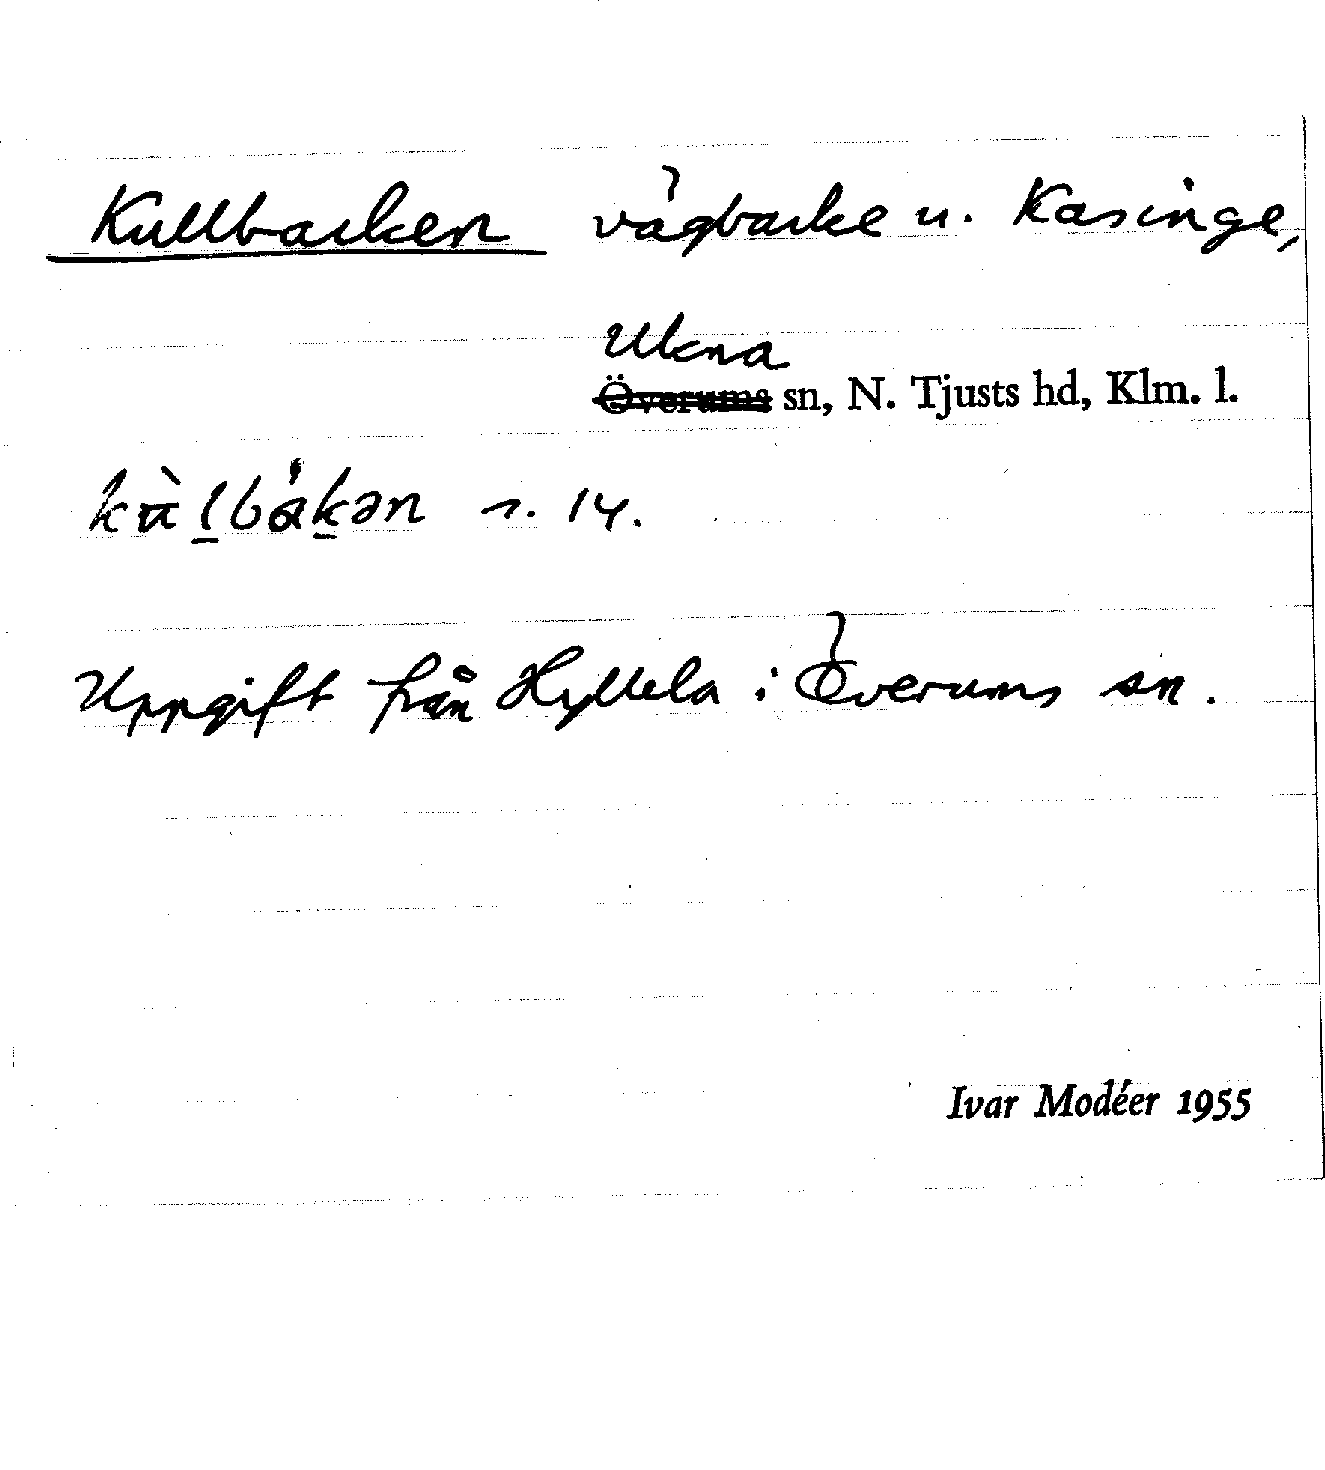 Kullbacken vägbacke u. Kasinge,
Ukna
Överums sn, N. Tjusts hd, Klm. l.
s. 14.
Uppgift från Hyllela i Överums sn.
Ivar Modéer 1955